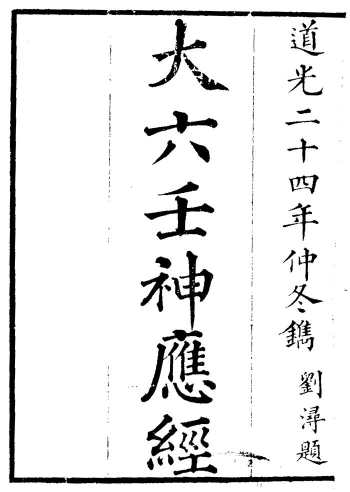 道光二十四年仲冬鐫 劉潯題
大六壬神應經